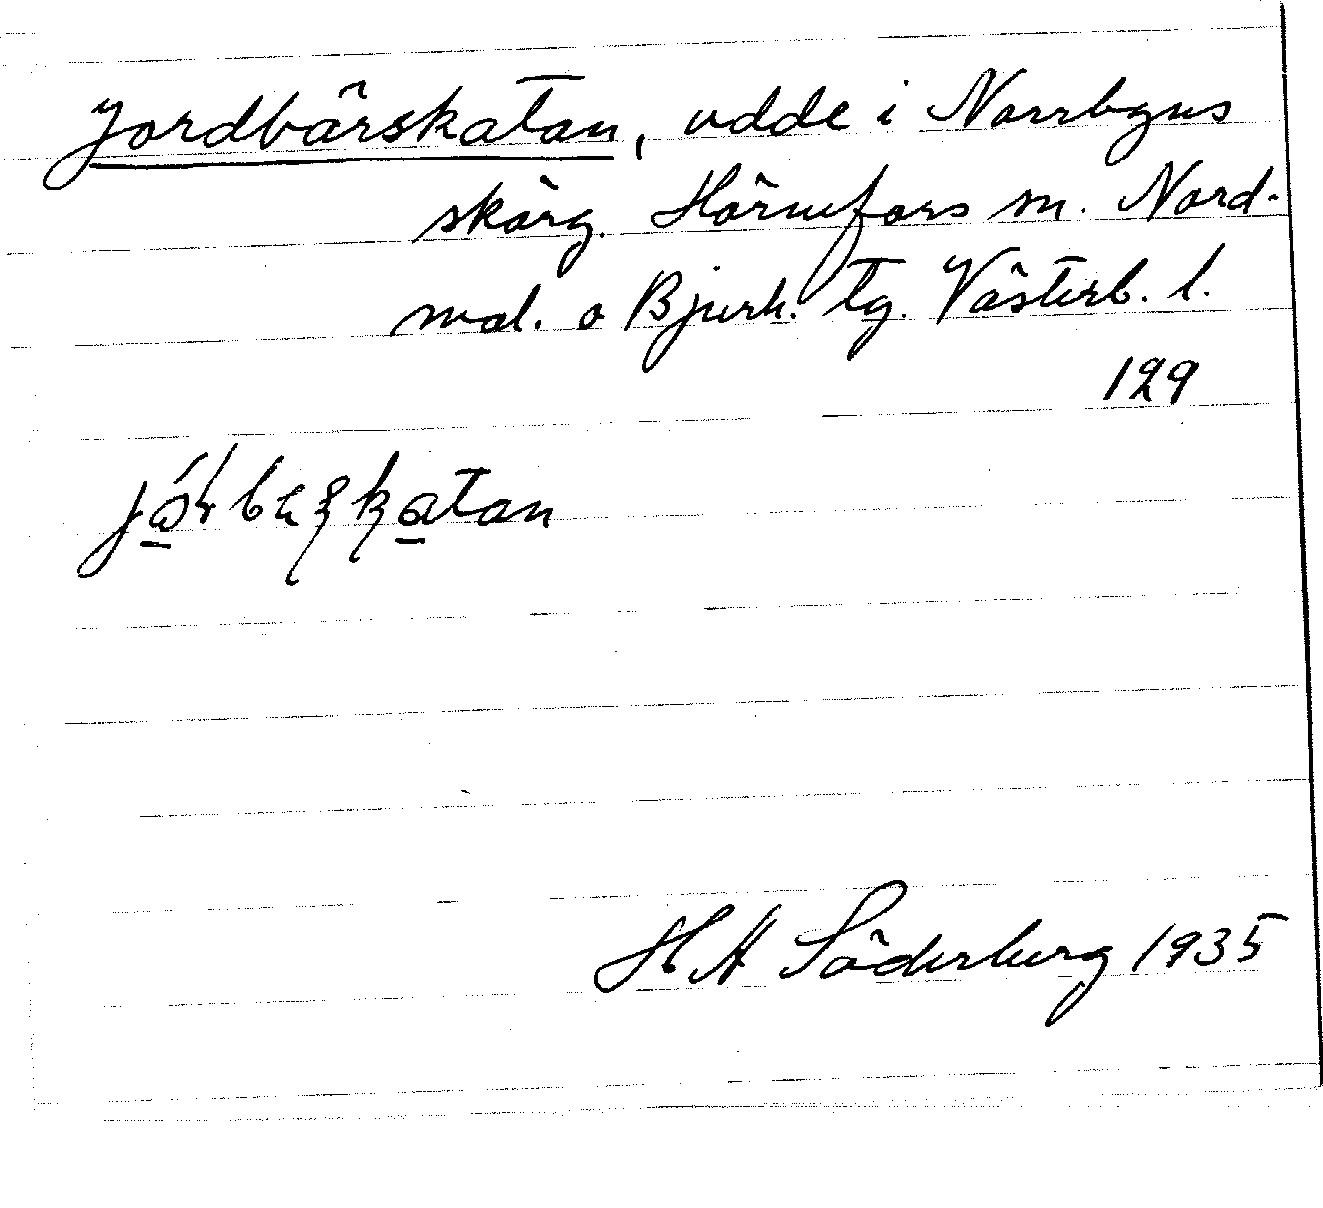 Jordbärskatan, udde i Norrbyns
skärg. Hörnefors sn. Nord-
mal. o Bjurh. tg. Västerb. l.
129
H A Söderberg 1935